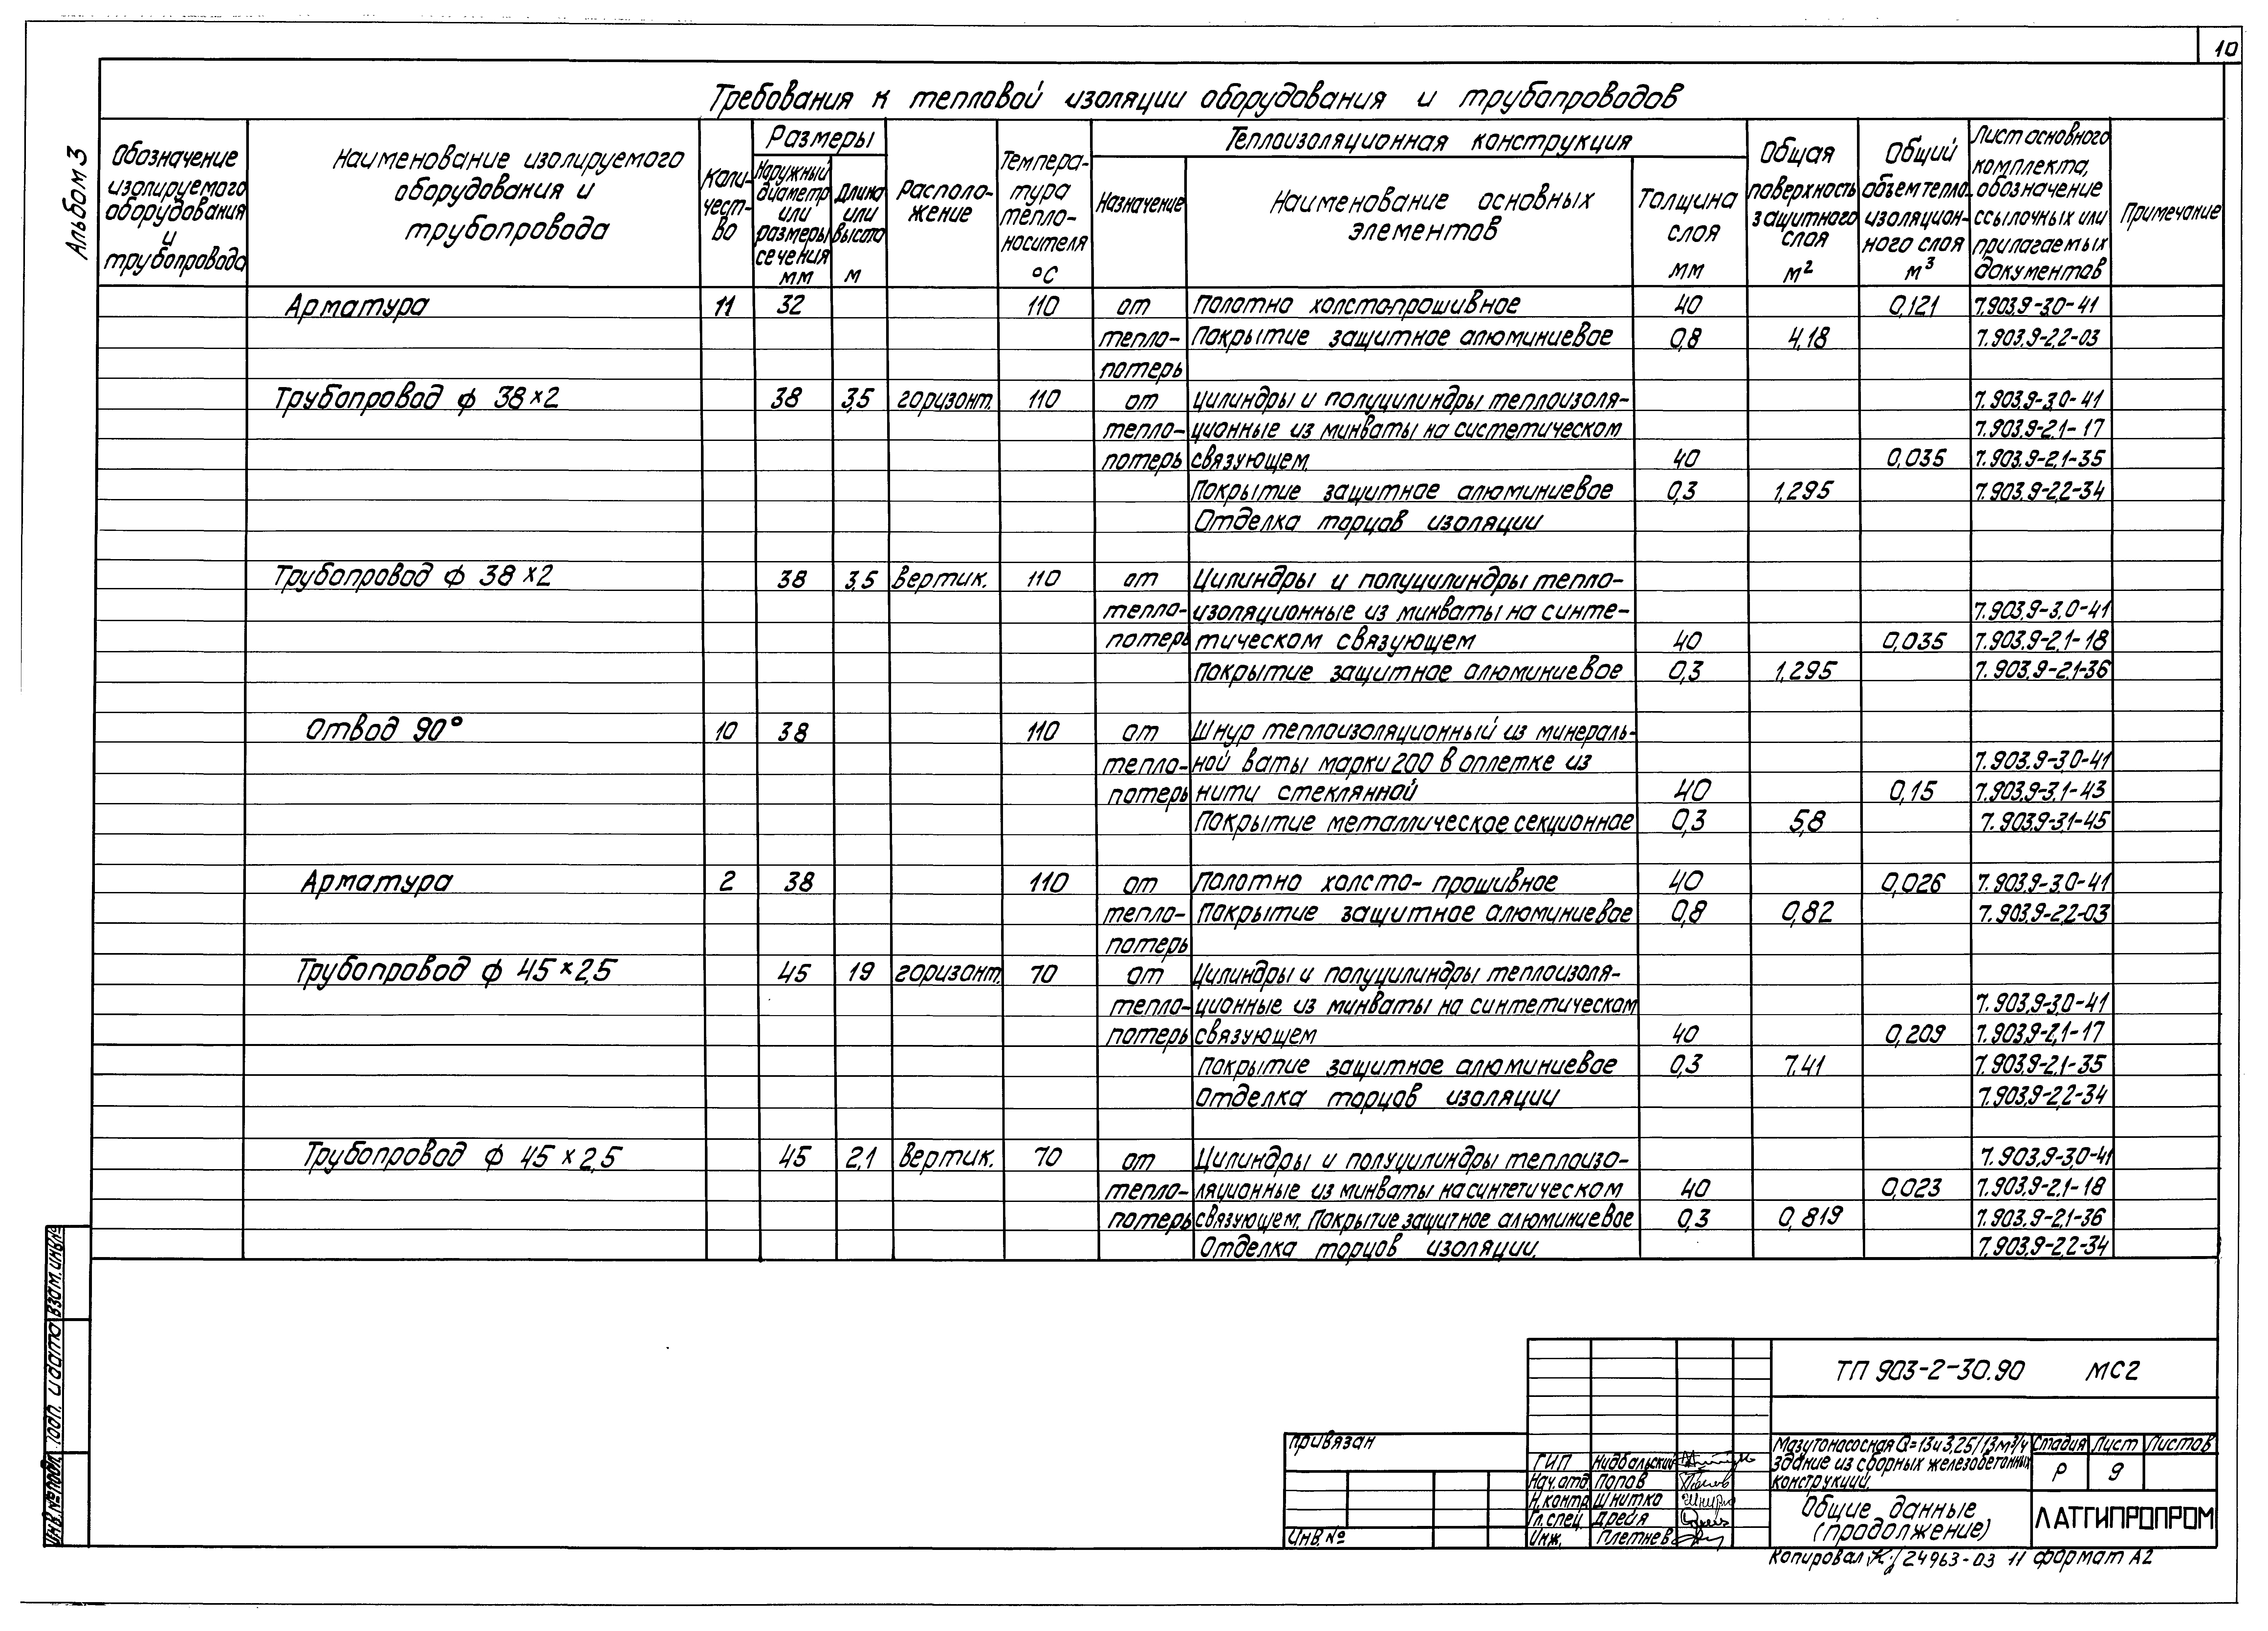 10
Альбом 3
Требования к тепловой изоляции оборудования и трубопроводов
Обозначение изолируемого оборудования и трубопровода
Наименование изолируемого оборудования и трубопровода
Коли-чест-во
Размеры
Наружный диаметр или размеры сечения мм
Длина или высота м
Располо-жение
Темпера-тура тепло-носителя °С
Теплоизоляционная конструкция
Назначение
Наименование основных элементов
Толщина слоя мм
Общая поверхность защитного слоя м²
Общий объем тепло-изоляцион-ного слоя м³
Лист основного комплекта, обозначение ссылочных или прилагаемых документов
Примечание
Арматура 11 32 110 от Полотно холстопрошивное 40 0,121 7.903.9-3.0-41
тепло- Покрытие защитное алюминиевое 0,8 4,18 7.903.9-2.2-03
потерь
Трубопровод ф 38×2 38 3,5 горизонт. 110 от цилиндры и полуцилиндры теплоизоля- 7.903.9-3.0-41
тепло- ционные из минваты на систетическом 7.903.9-2.1-17
потерь связующем. 40 0,035 7.903.9-2.1-35
Покрытие защитное алюминиевое 0,3 1,295 7.903.9-2.2-34
Отделка торцов изоляции
Трубопровод ф 38×2 38 3,5 вертик. 110 от Цилиндры и полуцилиндры тепло-
тепло- изоляционные из минваты на синте- 7.903.9-3.0-41
потерь тическом связующем 40 0,035 7.903.9-2.1-18
Покрытие защитное алюминиевое 0,3 1,295 7.903.9-2.1-36
Отвод 90° 10 38 110 от Шнур теплоизоляционный из минераль-
тепло- ной ваты марки 200 в оплетке из 7.903.9-3.0-41
потерь нити стеклянной 40 0,15 7.903.9-3.1-43
Покрытие металлическое секционное 0,3 5,8 7.903.9-3.1-45
Арматура 2 38 110 от Полотно холсто-прошивное 40 0,026 7.903.9-3.0-41
тепло- Покрытие защитное алюминиевое 0,8 0,82 7.903.9-2.2-03
потерь
Трубопровод ф 45×2,5 45 19 горизонт. 70 от Цилиндры и полуцилиндры теплоизоля-
тепло- ционные из минваты на синтетическом 7.903.9-3.0-41
потерь связующем 40 0,209 7.903.9-2.1-17
Покрытие защитное алюминиевое 0,3 7.41 7.903.9-2.1-35
Отделка торцов изоляции 7.903.9-2.2-34
Трубопровод ф 45×2,5 45 2,1 Вертик. 70 от Цилиндры и полуцилиндры теплоизо- 7.903.9-3.0-41
тепло- ляционные из минваты на синтетическом 40 0,023 7.903.9-2.1-18
потерь связующем. Покрытие защитное алюминиевое 0,3 0,819 7.903.9-2.1-36
Отделка торцов изоляции. 7.903.9-2.2-34
Взам. инв.№
Подп. и дата
Инв.№ подл.
ТП 903-2-30.90 МС2
Привязан
Инв.№
ГИП Нидбальский
Нач.отд. Попов
Н.контр. Шнитко
Гл.спец. Дрейя
Инж. Плетнев
Мазутонасосная Q=13и3,25/13м³/ч
здание из сборных железобетонных
конструкций.
Стадия Лист Листов
Р 9
Общие данные
(продолжение)
ЛАТГИПРОПРОМ
Копировал 24963-03 11 формат А2